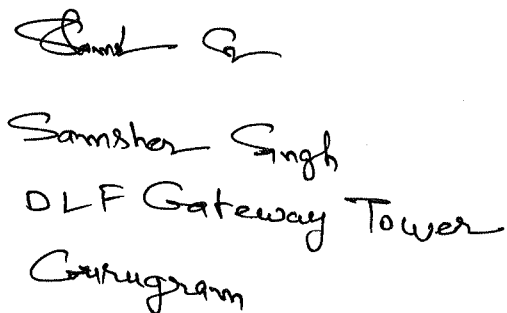 Samsher Singh
DLF Gateway Tower
Gurugram